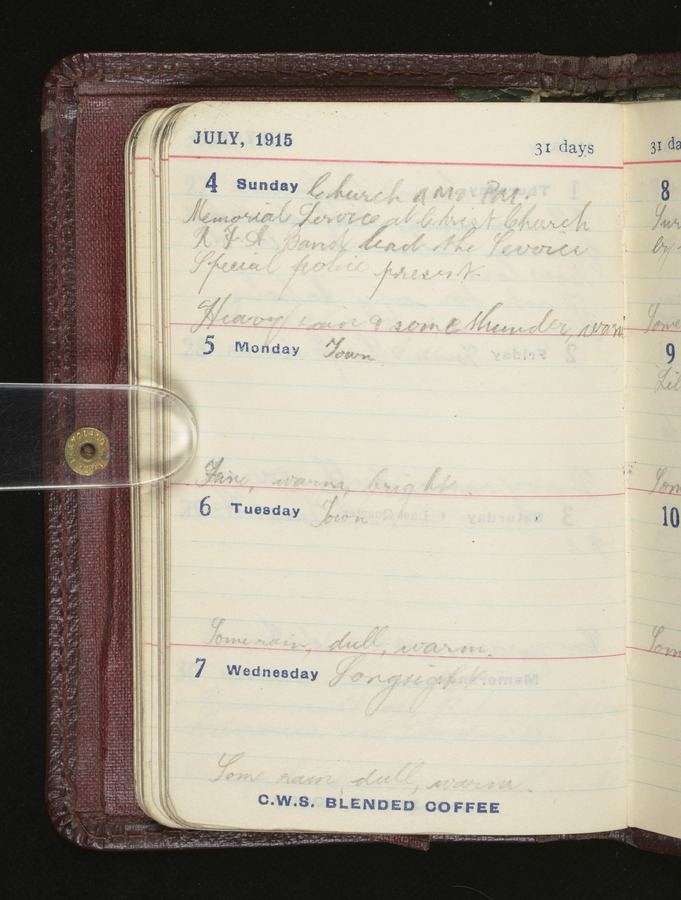 JULY, 1915
31 days
4 Sunday Church AM. PM.
Memorial Service at Christ Church
R F A Band lead the Sevoice
Special police present.
Heavy rain & some thunder, warm
5 Monday Town
Fine, warm, bright.
6 Tuesday Town
Some rain, dull, warm.
7 Wednesday Longsight
Some rain, dull, warm.
C.W.S. BLENDED COFFEE
31 da
8
Some
9
10